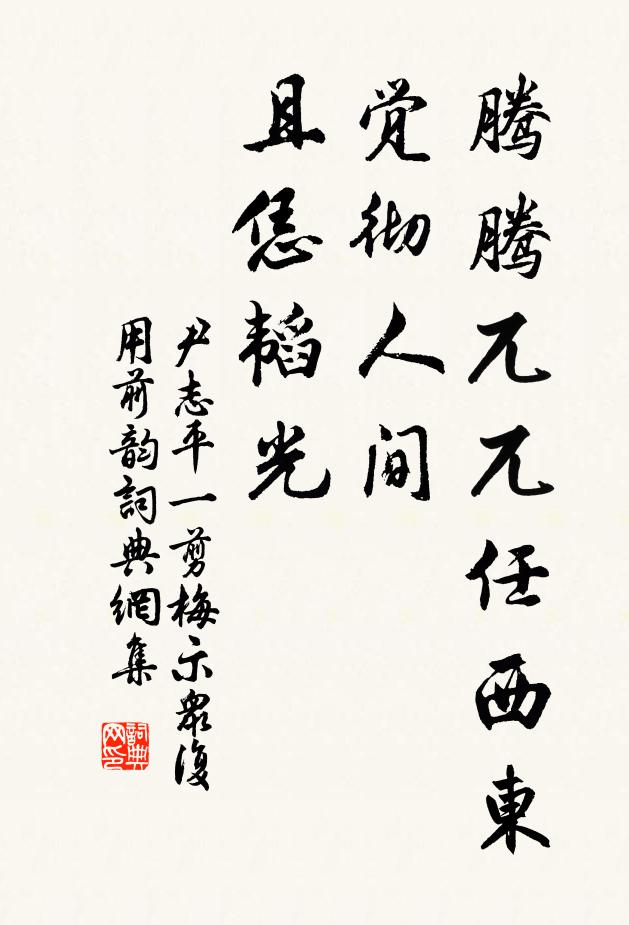 腾腾兀兀任西東
觉彻人间
且恁韬光
尹志平一剪梅示衆復
用前韵詞典網集
詞典网印